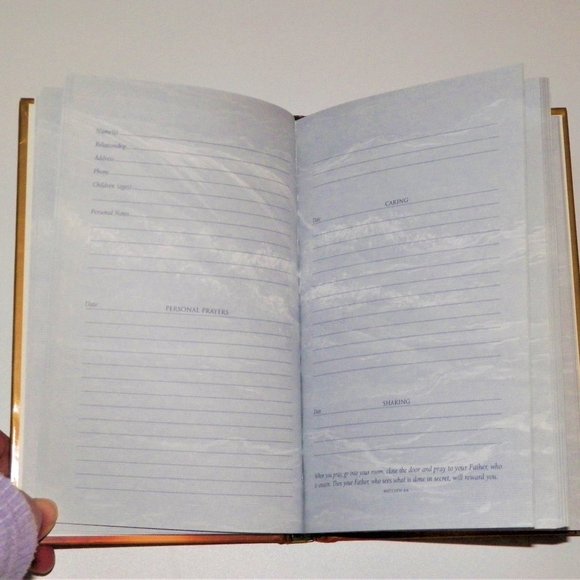 Name(s)
Relationship
Address
Phone
Children (ages)
Personal Notes
Date
PERSONAL PRAYERS
CARING
Date
SHARING
Date
When you pray, go into your room, close the door and pray to your Father, who
is unseen. Then your Father, who sees what is done in secret, will reward you.
MATTHEW 6:6